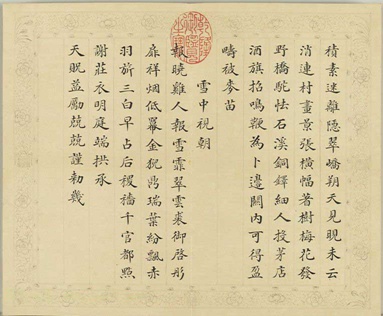 積素迷離隱翠嶠朔天見晛未云
消連村畫景張橫幅著樹梅花發
野橋駝怯石溪銅鐸細人投茅店
酒旗招鳴鞭為卜邊關內可得盈
疇被麥苗
雪中視朝
報曉雞人報雪霏翠雲裘御啓彤
扉祥烟低羃金猊鼎瑞葉紛飄赤
羽旂三白早占后稷穡千官都點
謝莊衣明庭端拱承
天貺益勵兢兢謹勑幾